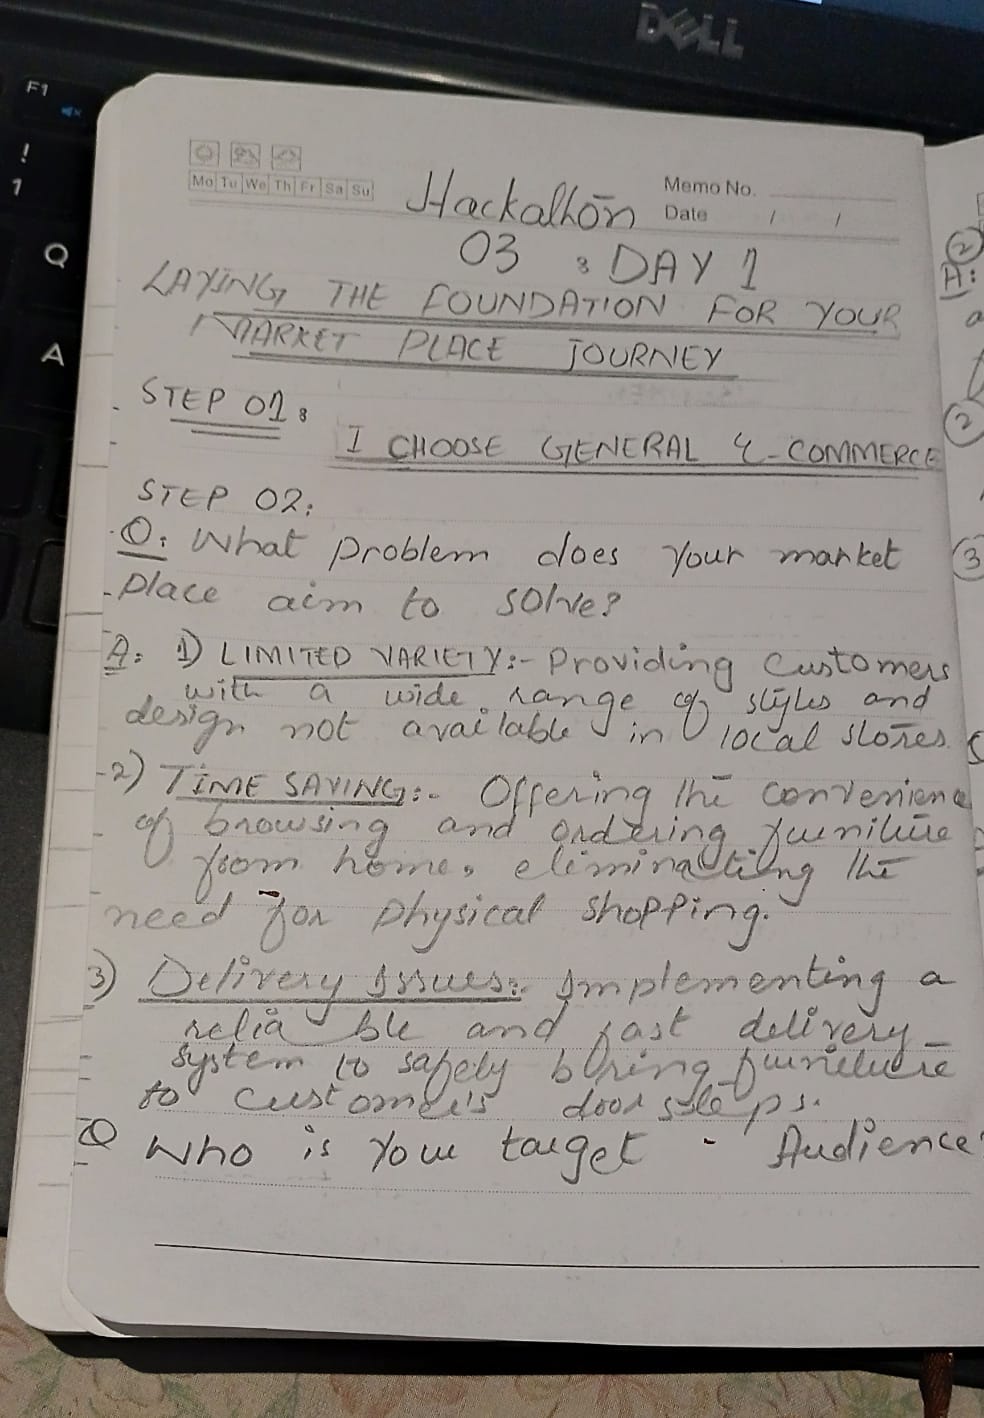 DELL
F1
!
1
Q
A
Mo Tu We Th Fr Sa Su
Memo No.
Date / /
Hackathon
03 : DAY 1
LAYING THE FOUNDATION FOR YOUR
MARKET PLACE JOURNEY
STEP 01:
I CHOOSE GENERAL E-COMMERCE
STEP 02:
Q: What problem does your market
place aim to solve?
A: 1) LIMITED VARIETY:- Providing customers
with a wide range of styles and
design not available in local stores.
2) TIME SAVING:- Offering the convenienc
of browsing and ordering furniture
from home, eliminacting the
need for physical shopping.
3) Delivery Issues:- Implementing a
relia ble and fast delivery
system to safely bhring furniture
to customer's door ste ps.
Q Who is your target - Audience
2
A:
a
2
3